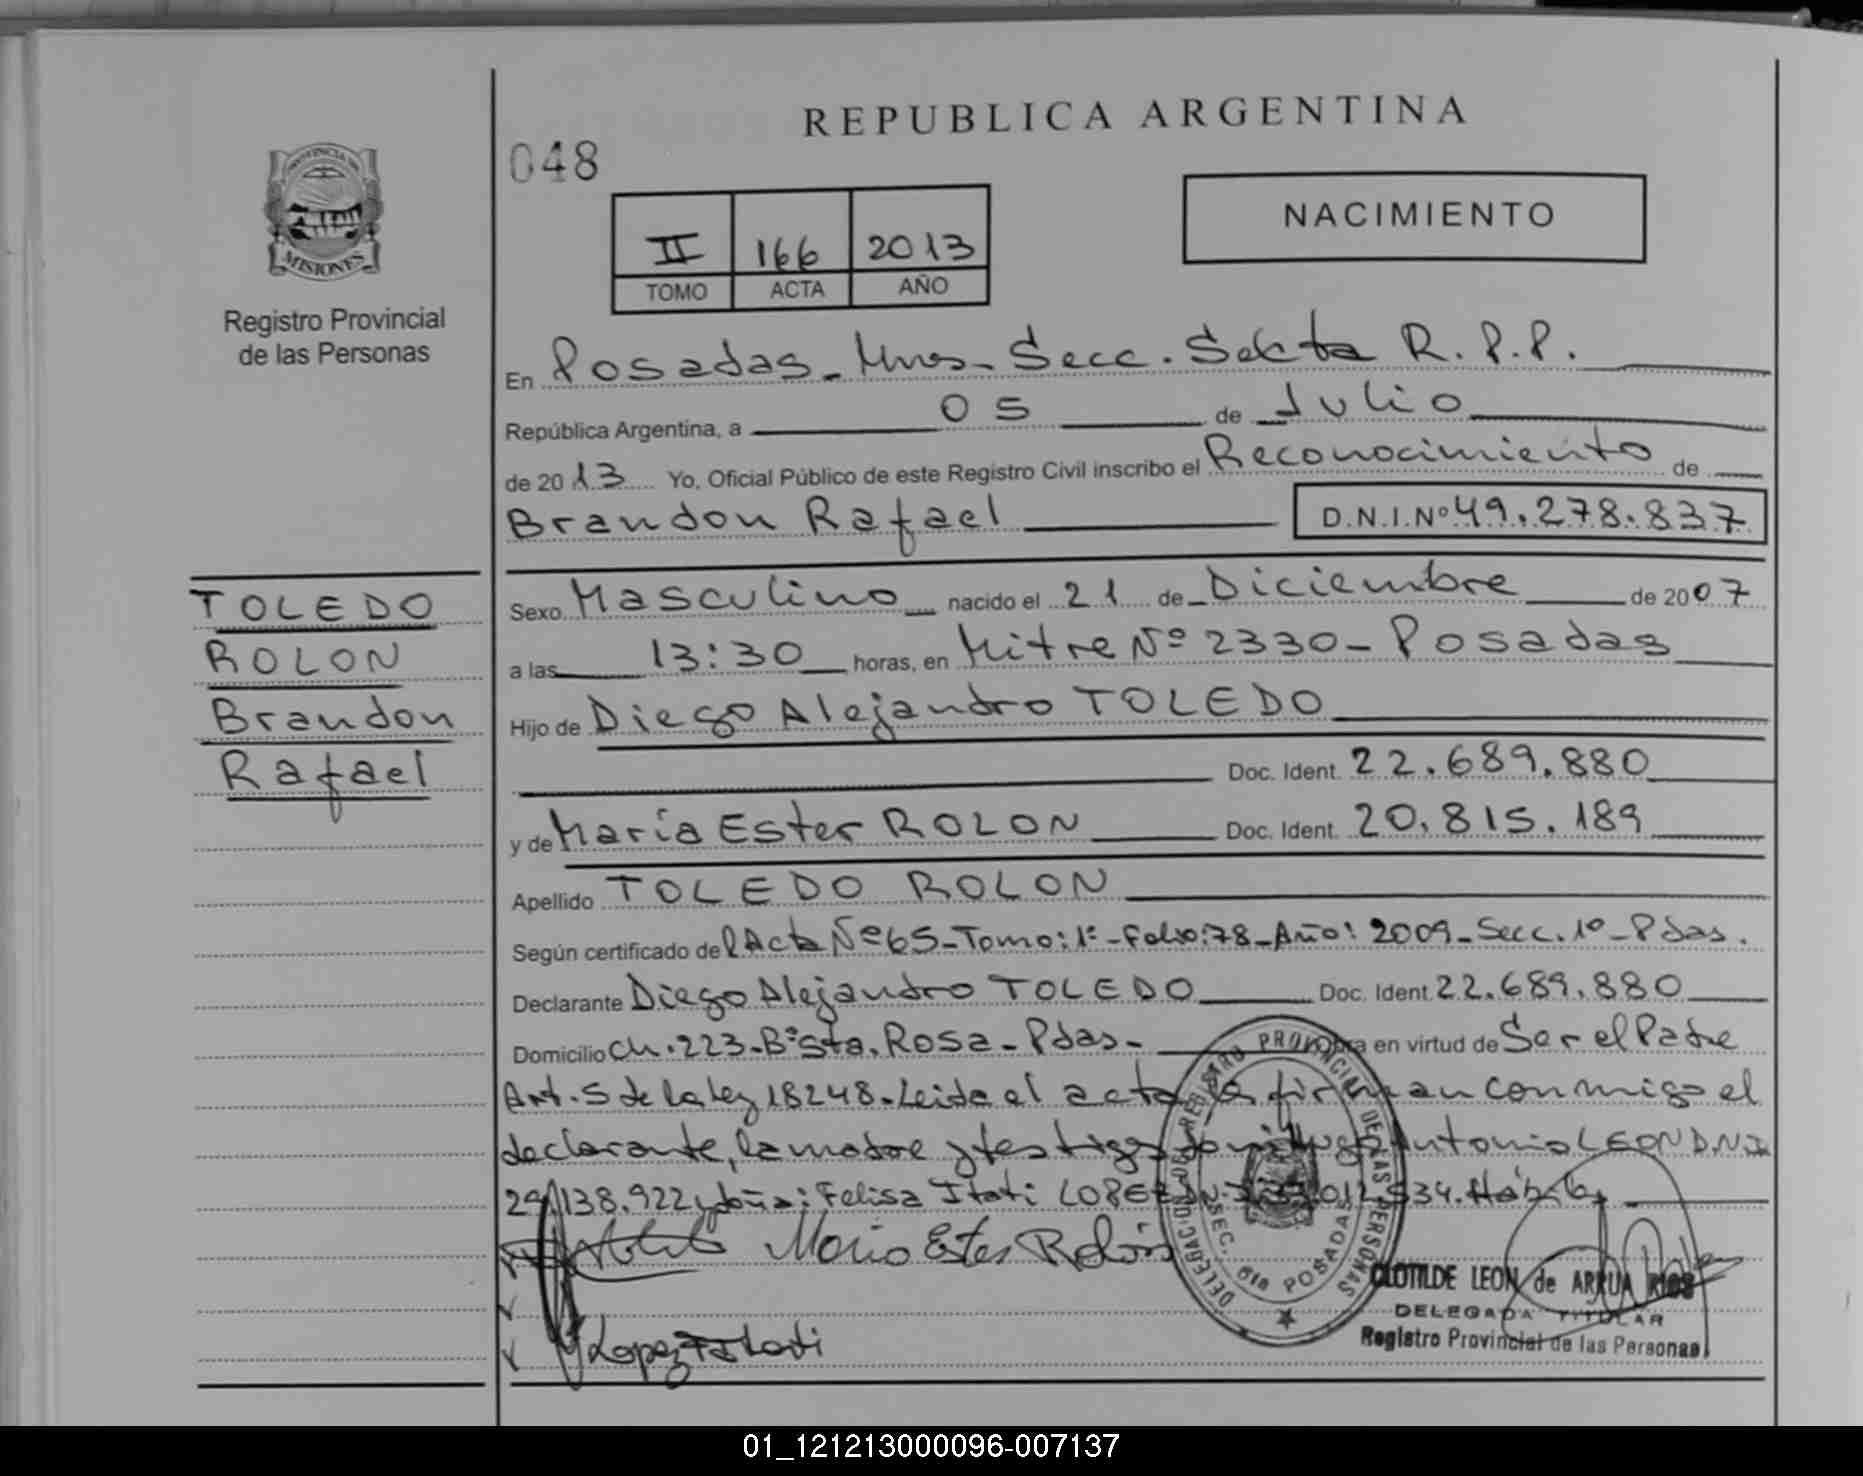 REPUBLICA ARGENTINA
048
PROVINCIA DE
MISIONES
Registro Provincial
de las Personas
II 166 2013
TOMO ACTA AÑO
NACIMIENTO
En Posadas_Mnes_Secc. Sexta R.P.P.
República Argentina, a 05 de Julio
de 2013 Yo, Oficial Público de este Registro Civil inscribo el Reconocimiento de
Brandon Rafael D.N.I.Nº 49.278.837
TOLEDO
ROLON
Brandon
Rafael
Sexo Masculino nacido el 21 de Diciembre de 2007
a las 13:30 horas, en Mitre Nº 2330_Posadas
Hijo de Diego Alejandro TOLEDO
Doc. Ident. 22.689.880
y de María Ester ROLON Doc. Ident. 20.815.189
Apellido TOLEDO ROLON
Según certificado de l Acta Nº 65_Tomo: 1º_Folio: 78_Año: 2009_Secc. 1º_Pdas.
Declarante Diego Alejandro TOLEDO Doc. Ident. 22.689.880
Domicilio Ch. 223_Bº Sta. Rosa_Pdas_ Obra en virtud de Ser el Padre
Art. 5 de la ley 18248. Leida el acta la firman conmigo el
declarante, la madre y testigos Antonio LEON D.N.I
29.138.922 y doña: Felisa Itati LOPEZ D.N.I. 534. Hábil
Maria Ester Rolón
Lopez Itati
REGISTRO PROVINCIAL DE LAS PERSONAS
SEC. 6ta POSADAS
CLOTILDE LEON de ARRUA RIOS
DELEGADA TITULAR
Registro Provincial de las Personas
01_121213000096-007137